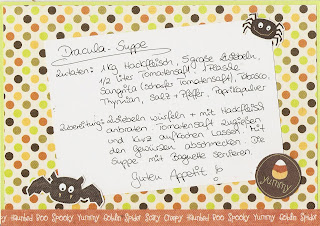 Dracula-Suppe
Zutaten: 1 kg Hackfleisch, 5 große Zwiebeln,
1/2 Liter Tomatensaft, 1 Flasche
Sangrita (scharfer Tomatensaft), Tabasco,
Thymian, Salz + Pfeffer, Paprikapulver
Zubereitung: Zwiebeln würfeln + mit Hackfleisch
anbraten. Tomatensaft zugießen
und kurz aufkochen lassen. Mit
den Gewürzen abschmecken. Die
Suppe mit Baguette servieren.
Guten Appetit!
yummy
Haunted Boo Spooky Yummy Goblin Spider Scary Creepy Haunted Boo Spooky Yummy Goblin Spider